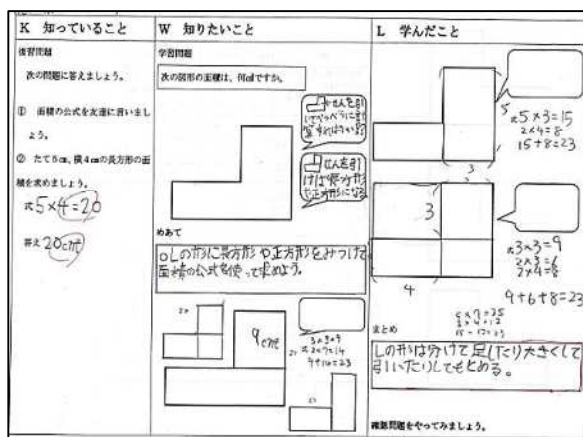 K 知っていること
復習問題
次の問題に答えましょう。
① 面積の公式を友達に言いまし
ょう。
② たて5cm、横4cmの長方形の面
積を求めましょう。
式5×4=20
答え20cm²
W 知りたいこと
学習問題
次の図形の面積は、何cm²ですか。
せんを引
けば長方形
や正方形になる
めあて
○Lの形に長方形や正方形をみつけて
面積の公式を使って求めよう。
9cm²
3×3=9
式2×7=14
9+14=23
L 学んだこと
5
3
式5×3=15
2×4=8
15+8=23
3
4
式3×3=9
2×3=6
2×4=8
9+6+8=23
5×7=35
3×4=12
まとめ
Lの形は分けて足したり大きくして
引いたりしてもとめる。
確認問題をやってみましょう。